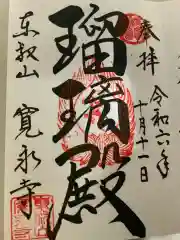 奉拝
令和六年
十月十一日
瑠璃殿
東叡山
寛永寺